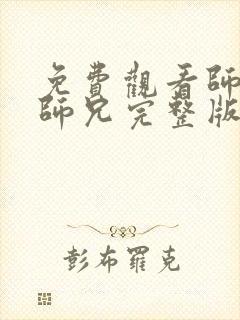 免費觀看師
師兄完整版
彭布羅克